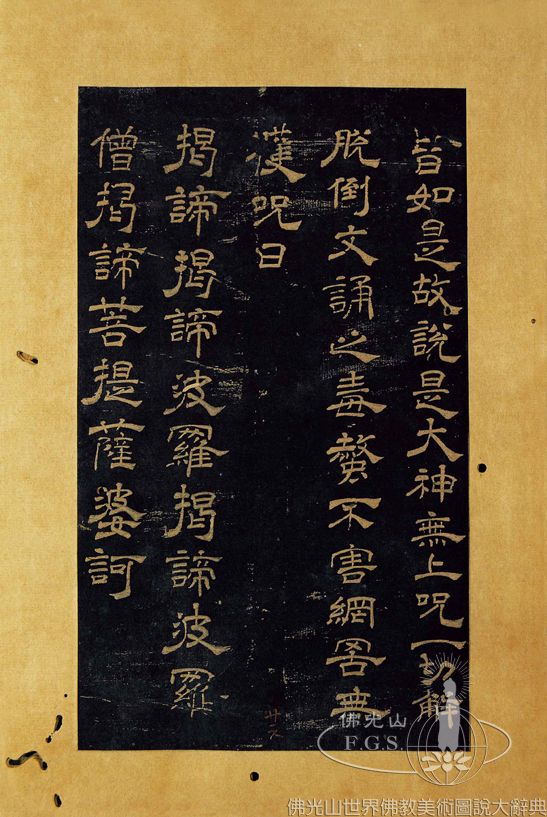 皆如是故說是大神無上呪一切解
脫倒文誦之毒螫不害網罟無
獲呪曰
揭諦揭諦波羅揭諦波羅
僧揭諦菩提薩婆訶
佛光山
F.G.S.
佛光山世界佛教美術圖說大辭典